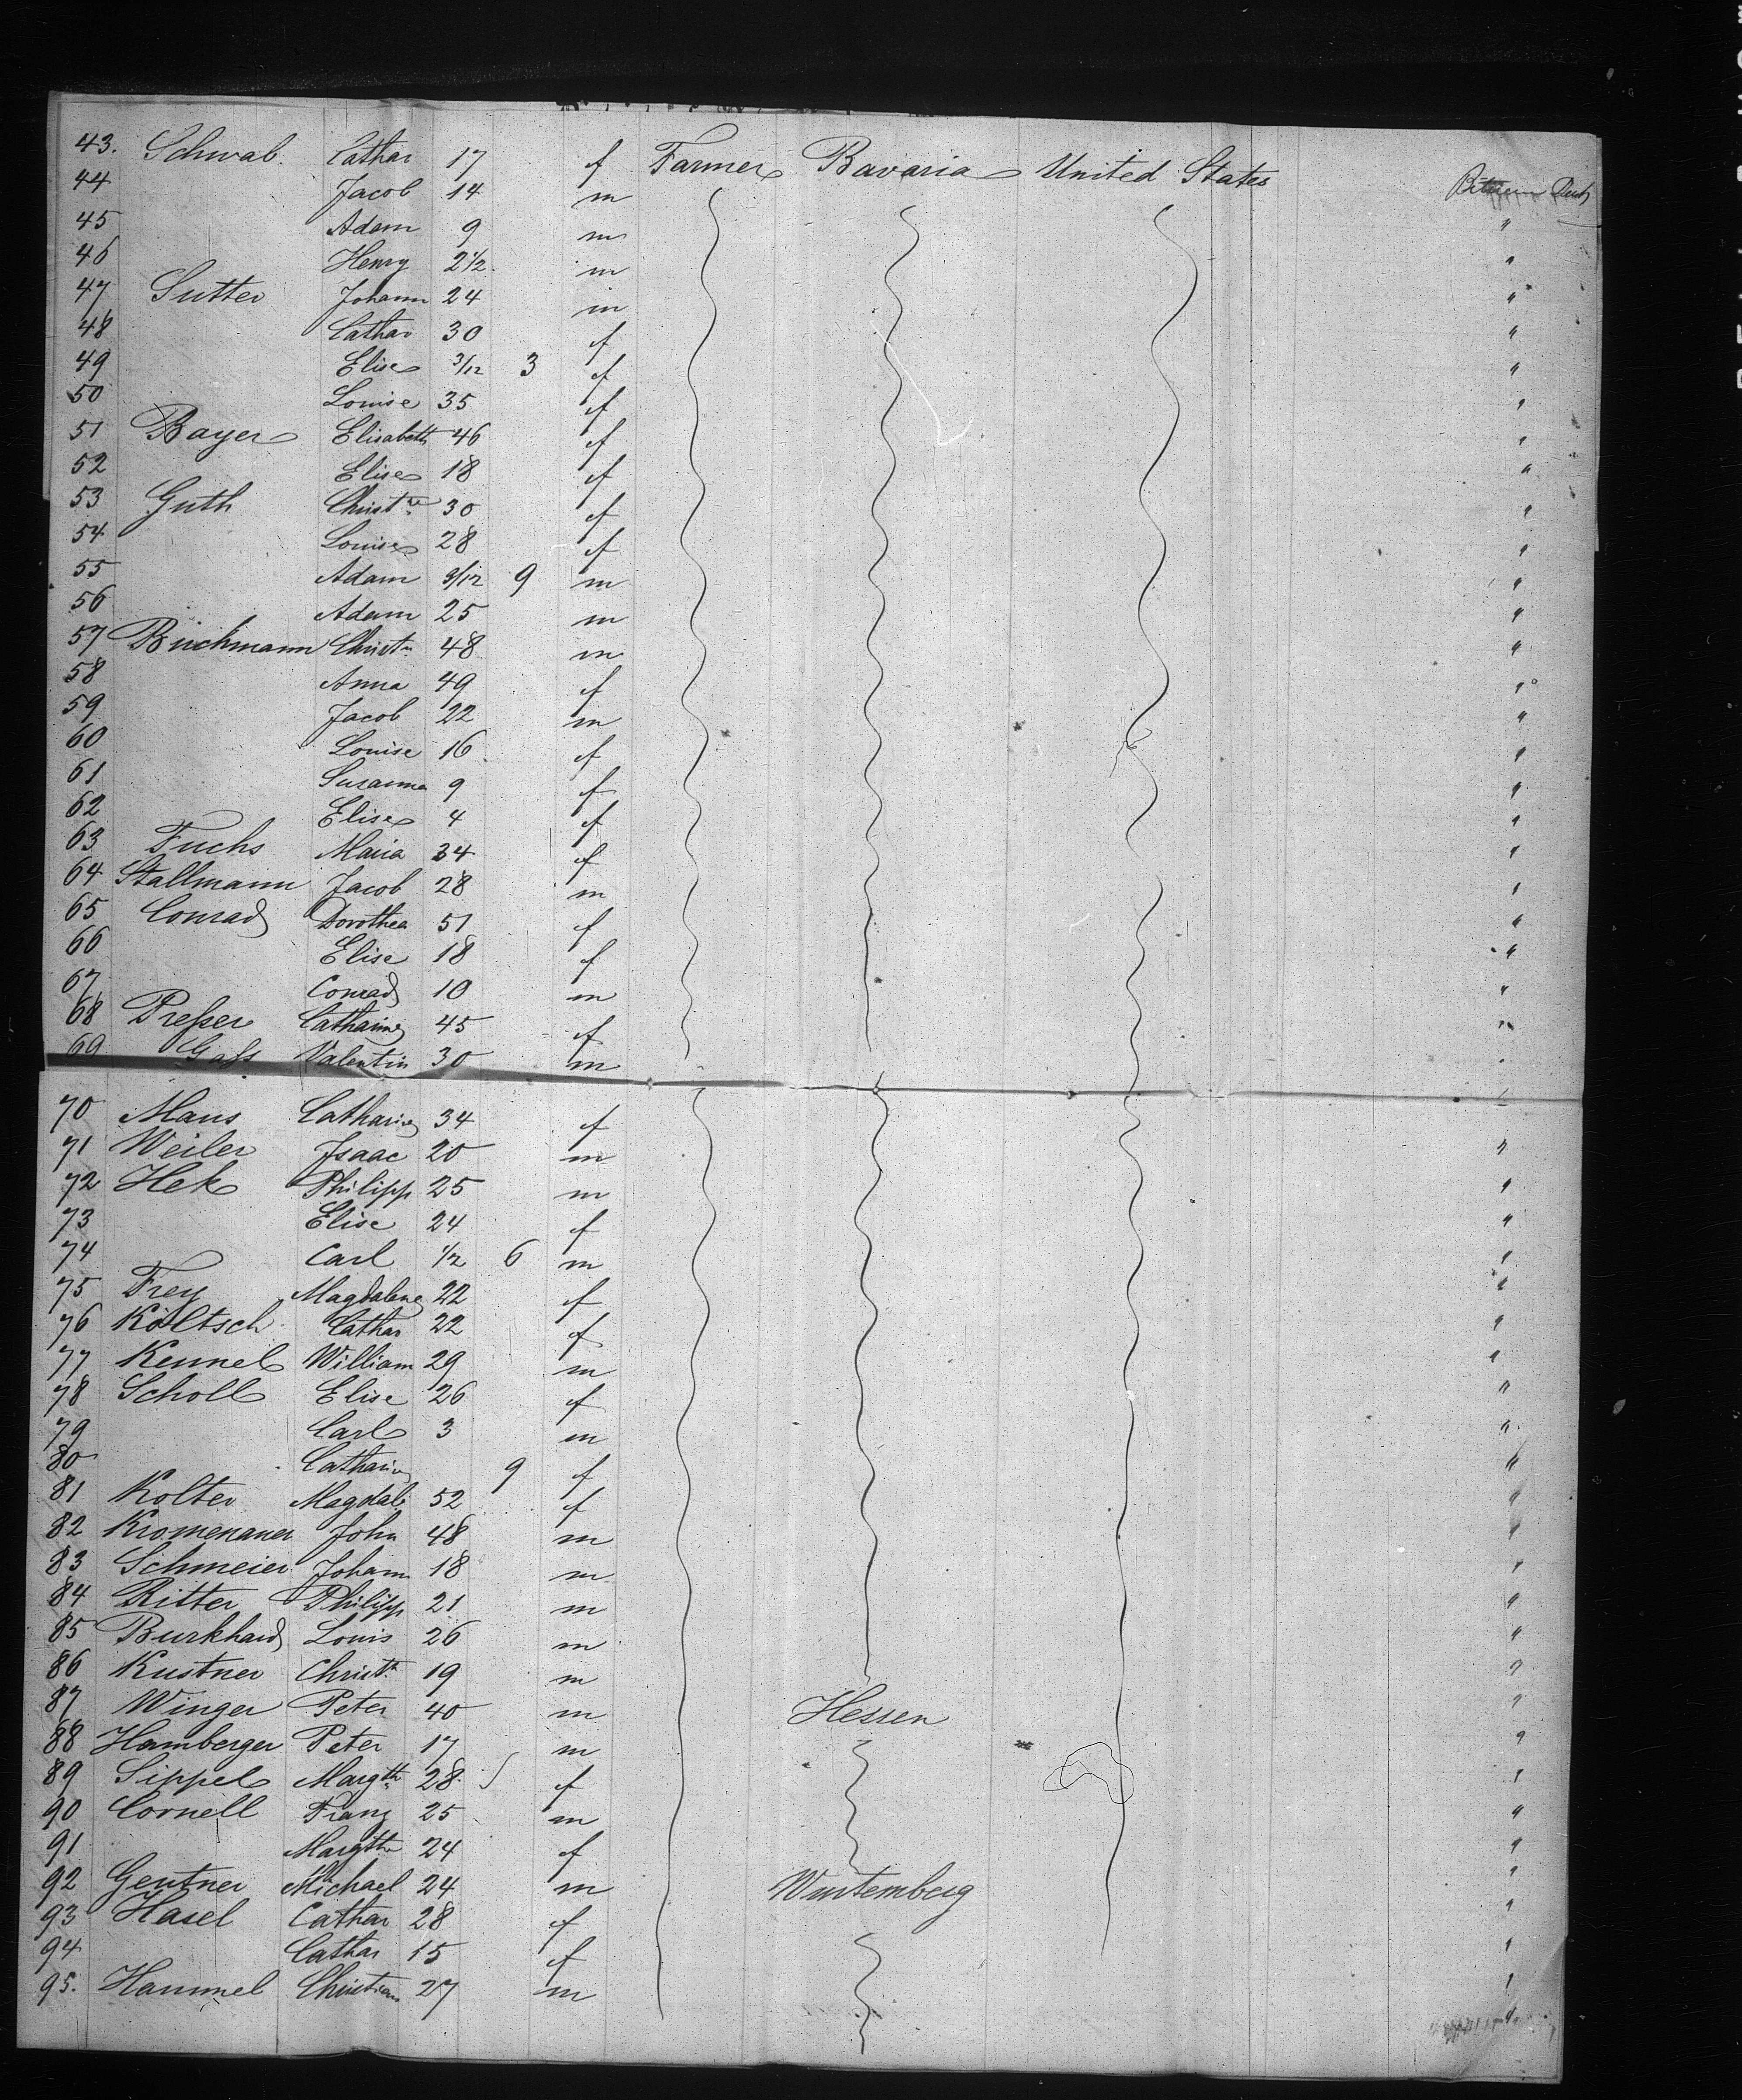 43. Schwab. Cathar 17 f Farmer Bavaria United States Between Deck
44 Jacob 14 m
45 Adam 9 m "
46 Henry 2 1/2 m "
47 Sutter Johann 24 m "
48 Cathar 30 f "
49 Elise 3/12 3 f "
50 Louise 35 f "
51 Bayer Elisabeth 46 f "
52 Elise 18 f "
53 Guth Christne 30 f "
54 Louise 28 f "
55 Adam 9/12 9 m "
56 Adam 25 m "
57 Buchmann Christn 48 m "
58 Anna 49 f "
59 Jacob 22 m "
60 Louise 16 f "
61 Susanna 9 f "
62 Elise 4 f "
63 Fuchs Maria 34 f "
64 Stallmann Jacob 28 m "
65 Conrad Dorothea 51 f "
66 Elise 18 f "
67 Conrad 10 m "
68 Preßer Catharine 45 f "
69 Gaß Valentin 30 m "
70 Maus Catharine 34 f "
71 Weiler Isaac 20 m "
72 Hek Philipp 25 m "
73 Elise 24 f "
74 Carl 1/2 6 m "
75 Frey Magdalene 22 f "
76 Költsch Cathar 22 f "
77 Kennel William 29 m "
78 Scholl Elise 26 f "
79 Carl 3 m "
80 Catharine 9 f "
81 Kolter Magdal. 52 f "
82 Kromenauer John 48 m "
83 Schmeier Johann 18 m "
84 Ritter Philipp 21 m "
85 Burkhard Louis 26 m "
86 Kustner Christn 19 m "
87 Winger Peter 40 m Hessen "
88 Hamberger Peter 17 m "
89 Sippel Margth 28 f "
90 Cornell Franz 25 m "
91 Margth 24 f "
92 Gentner Michael 24 m Wurtemberg "
93 Hasel Cathar 28 f "
94 Cathar 15 f "
95. Hammel Christian 27 m "